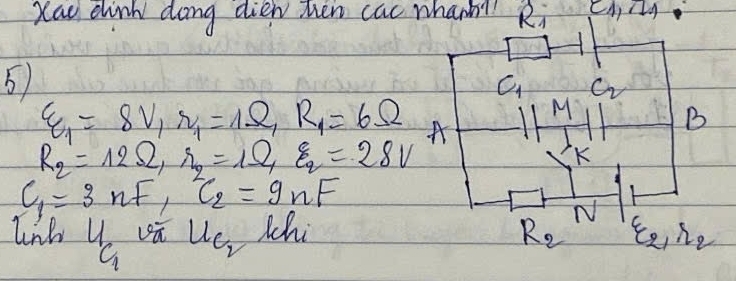 Xác định dòng điện trên các nhánh!
R₁ ℰ₁, r₁
5)
ℰ₁ = 8V, r₁ = 1Ω, R₁ = 6Ω
R₂ = 12Ω, r₂ = 1Ω, ℰ₂ = 28V
C₁ = 3 nF, C₂ = 9nF
tính U_C₁ và U_C₂ khi
C₁ C₂
A M B
K
R₂ N ℰ₂, r₂